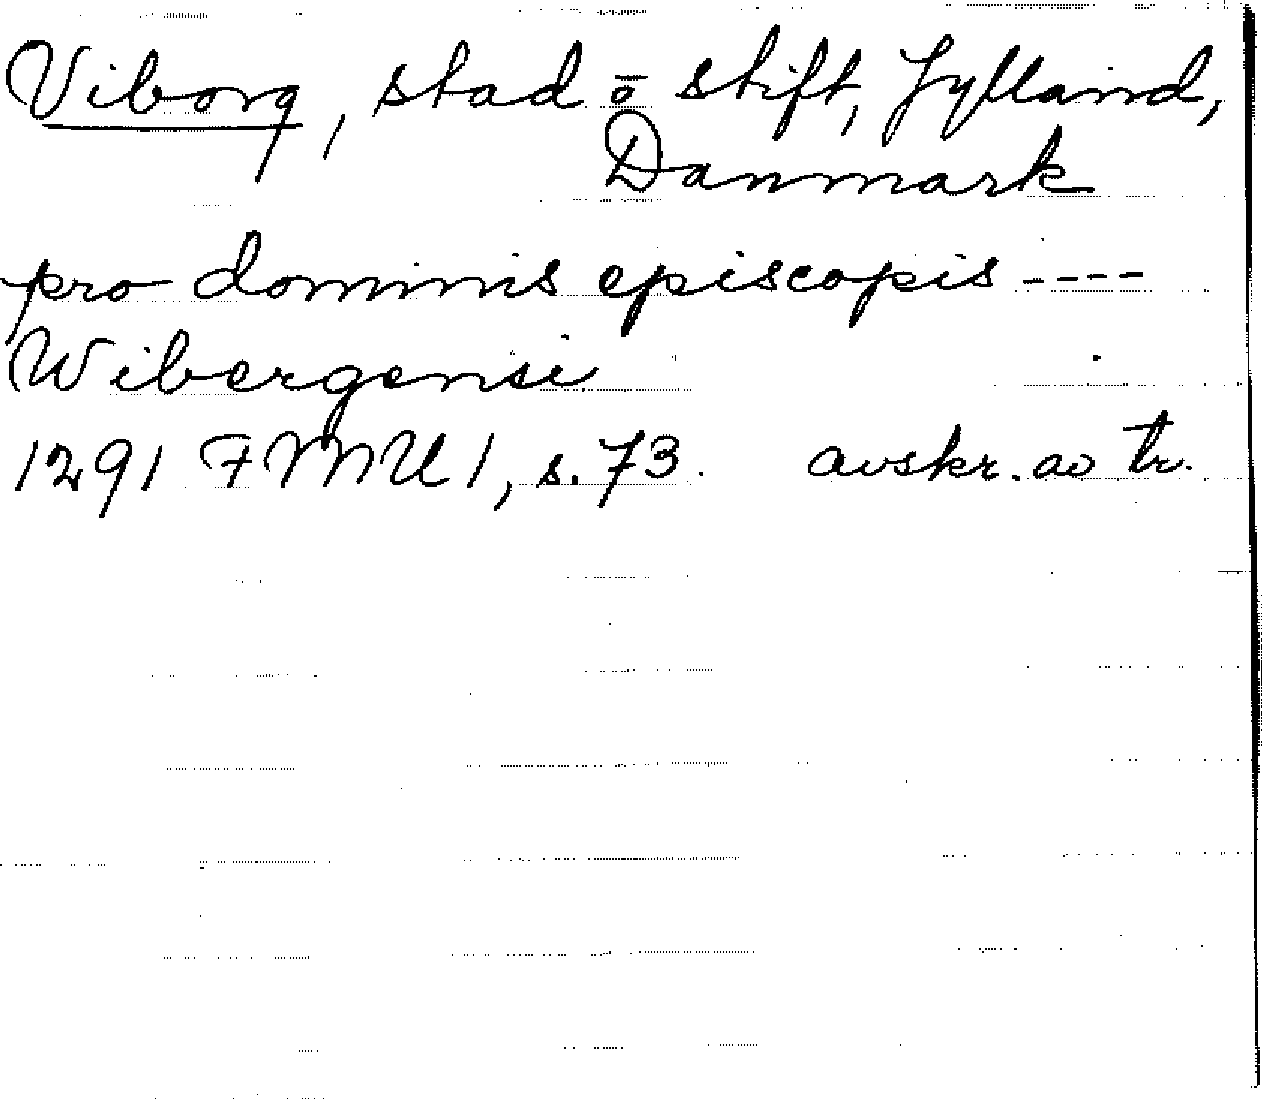 Viborg, stad o stift, Jylland,
Danmark
pro dominis episcopis ----
Wibergensi
1291 FMU 1, s. 73. avskr. av tr.